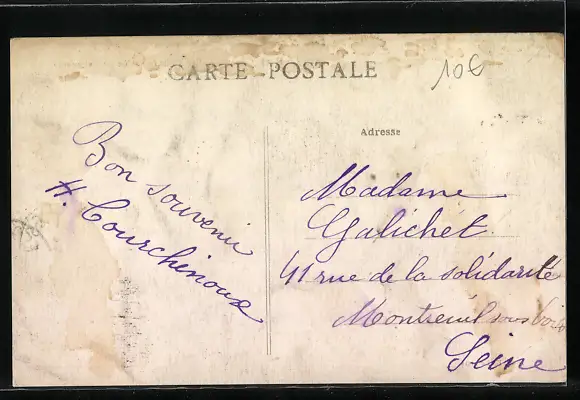 CARTE POSTALE
10€
Adresse
Bon souvenir
H. Courchinoux
Madame
Galichet
41 rue de la solidarité
Montreuil sous bois
Seine